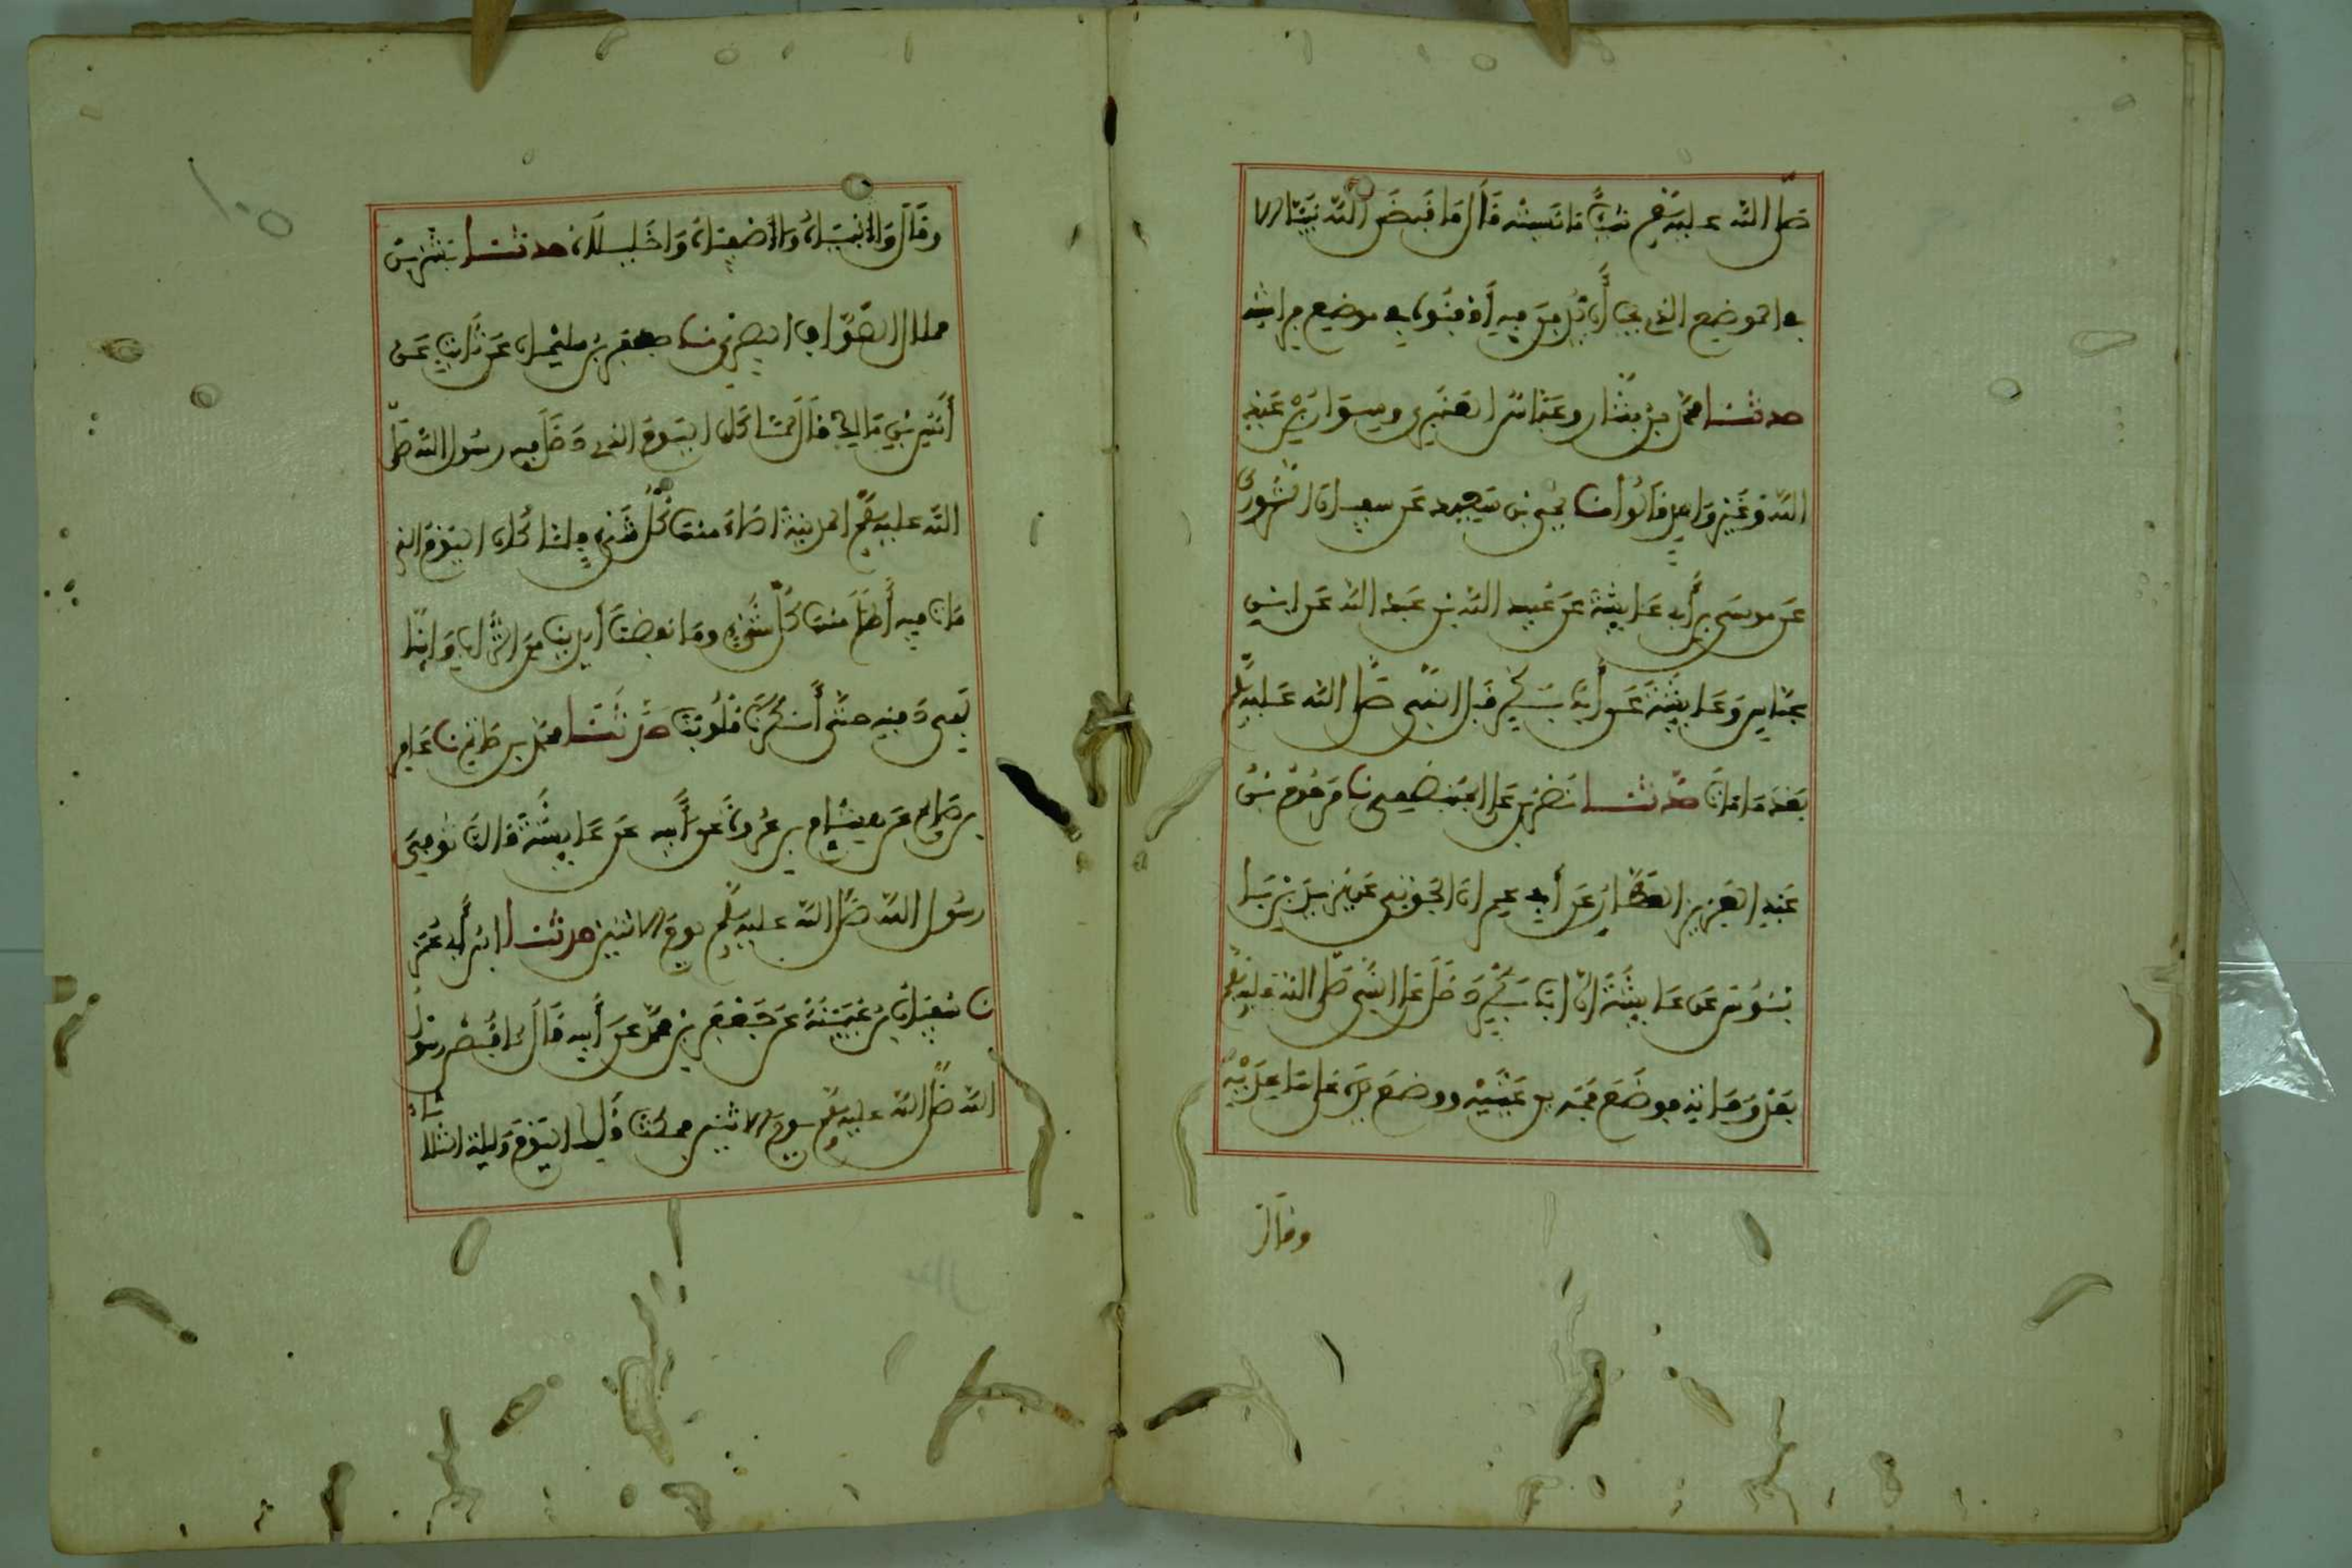 صلى الله عليه وسلم شيئا ما نسيته قال ما قبض الله نبيا الا
في الموضع الذي يحب أن يدفن فيه أدفنوه في موضع فراشه
حدثنا محمد بن بشار وعباس العنبري وسوار بن عبد
الله وغير واحد قالوا أنا يحيى بن سعيد عن سفيان الثوري
عن موسى بن أبي عايشة عن عبيد الله بن عبد الله عن ابن
عباس وعايشة عن أبا بكر قبل النبي صلى الله عليه وسلم
بعد ما مات حدثنا نصر بن علي الجهضمي نا مرحوم بن
عبد العزيز العطار عن أبي عمران الجوني عن يزيد بن با
بنوس عن عايشة ان ابا بكر دخل على النبي صلى الله عليه وسلم
بعد وفاته فوضع فمه بين عينيه ووضع يديه على ساعديه
وقال
وقال وانبياه واصفياه واخليلاه حدثنا بشر بن
هلال الصواف البصري نا جعفر بن سليمان عن ثابت عن
أنس بن مالك قال لما كان اليوم الذي دخل فيه رسول الله صلى
الله عليه وسلم المدينة اضاء منها كل شيء فلما كان اليوم الذي
مات فيه أظلم منها كل شيء وما نفضنا أيدينا من التراب وانا
لفي دفنه حتى أنكرنا قلوبنا حدثنا محمد بن حاتم نا عامر
بن صالح عن هشام بن عروة عن أبيه عن عايشة قالت توفي
رسول الله صلى الله عليه وسلم يوم الاثنين حدثنا ابن أبي عمر
نا سفيان بن عيينة عن جعفر بن محمد عن أبيه قال قبض رسول
الله صلى الله عليه وسلم يوم الاثنين فمكث ذلك اليوم وليلة الثلاثاء